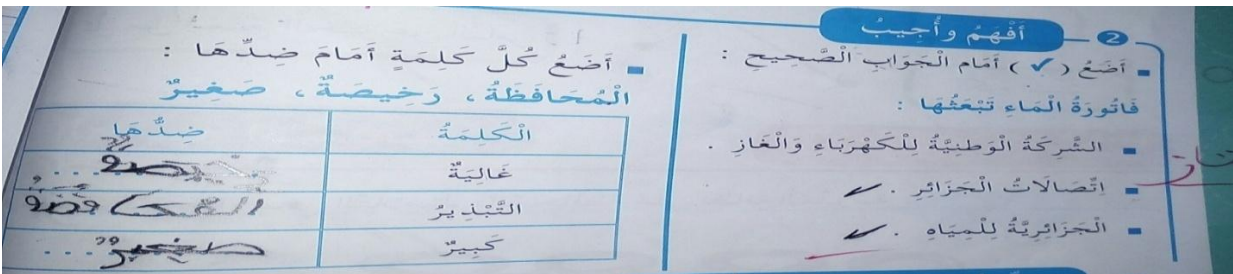 2 أَفْهَمُ وأُجِيبُ
▪ أَضَعُ ( ✓ ) أَمَام الْجَوَابِ الْصَّحِيحِ :
فَاتُورَةُ الْمَاءِ تَبْعَثُهَا :
▪ الشَّرِكَةُ الْوَطنِيَّةُ لِلْكَهْرَبَاءِ وَالْغَازِ .
▪ اِتِّصَالَاتُ الْجَزَائِرِ . ✓
▪ الْجَزَائِرِيَّةُ لِلْمِيَاهِ . ✓
▪ أَضَعُ كُلَّ كَلِمَةٍ أَمَامَ ضِدِّهَا :
الْمُحَافَظَةُ ، رَخِيصَةٌ ، صَغِيرٌ
الْكَلِمَةُ ضِدُّهَا
غَالِيَةٌ
التَّبْذِيرُ
كَبِيرٌ صغيرٌ